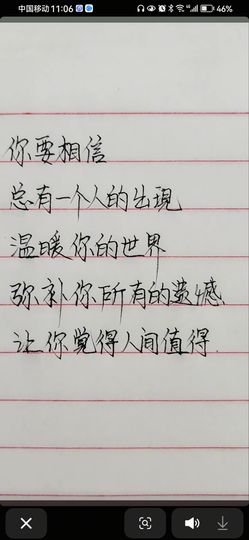 中国移动 11:06 46%
你要相信
总有一个人的出現
温暖你的世界
弥补你所有的遗憾
让你觉得人间值得.